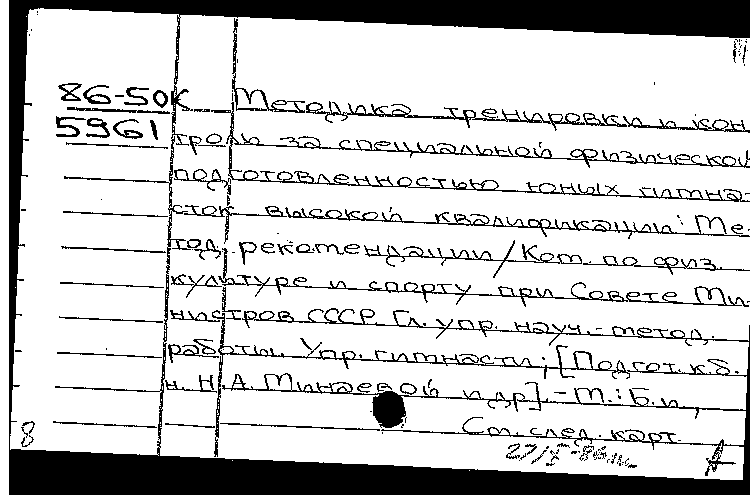 86-50К Методика тренировки и кон
5961 троль за специальной физической
подготовленностью юных гимна-
сток высокой квалификации: Ме-
тод. рекомендации / Ком. по физ.
культуре и спорту при Совете Ми-
нистров СССР. Гл. упр. науч.-метод.
работы. Упр. гимнасти; [Подгот. к.б.
н. Н.А. Минаевой и др]. - М.: Б.и,
См. след. карт.
8